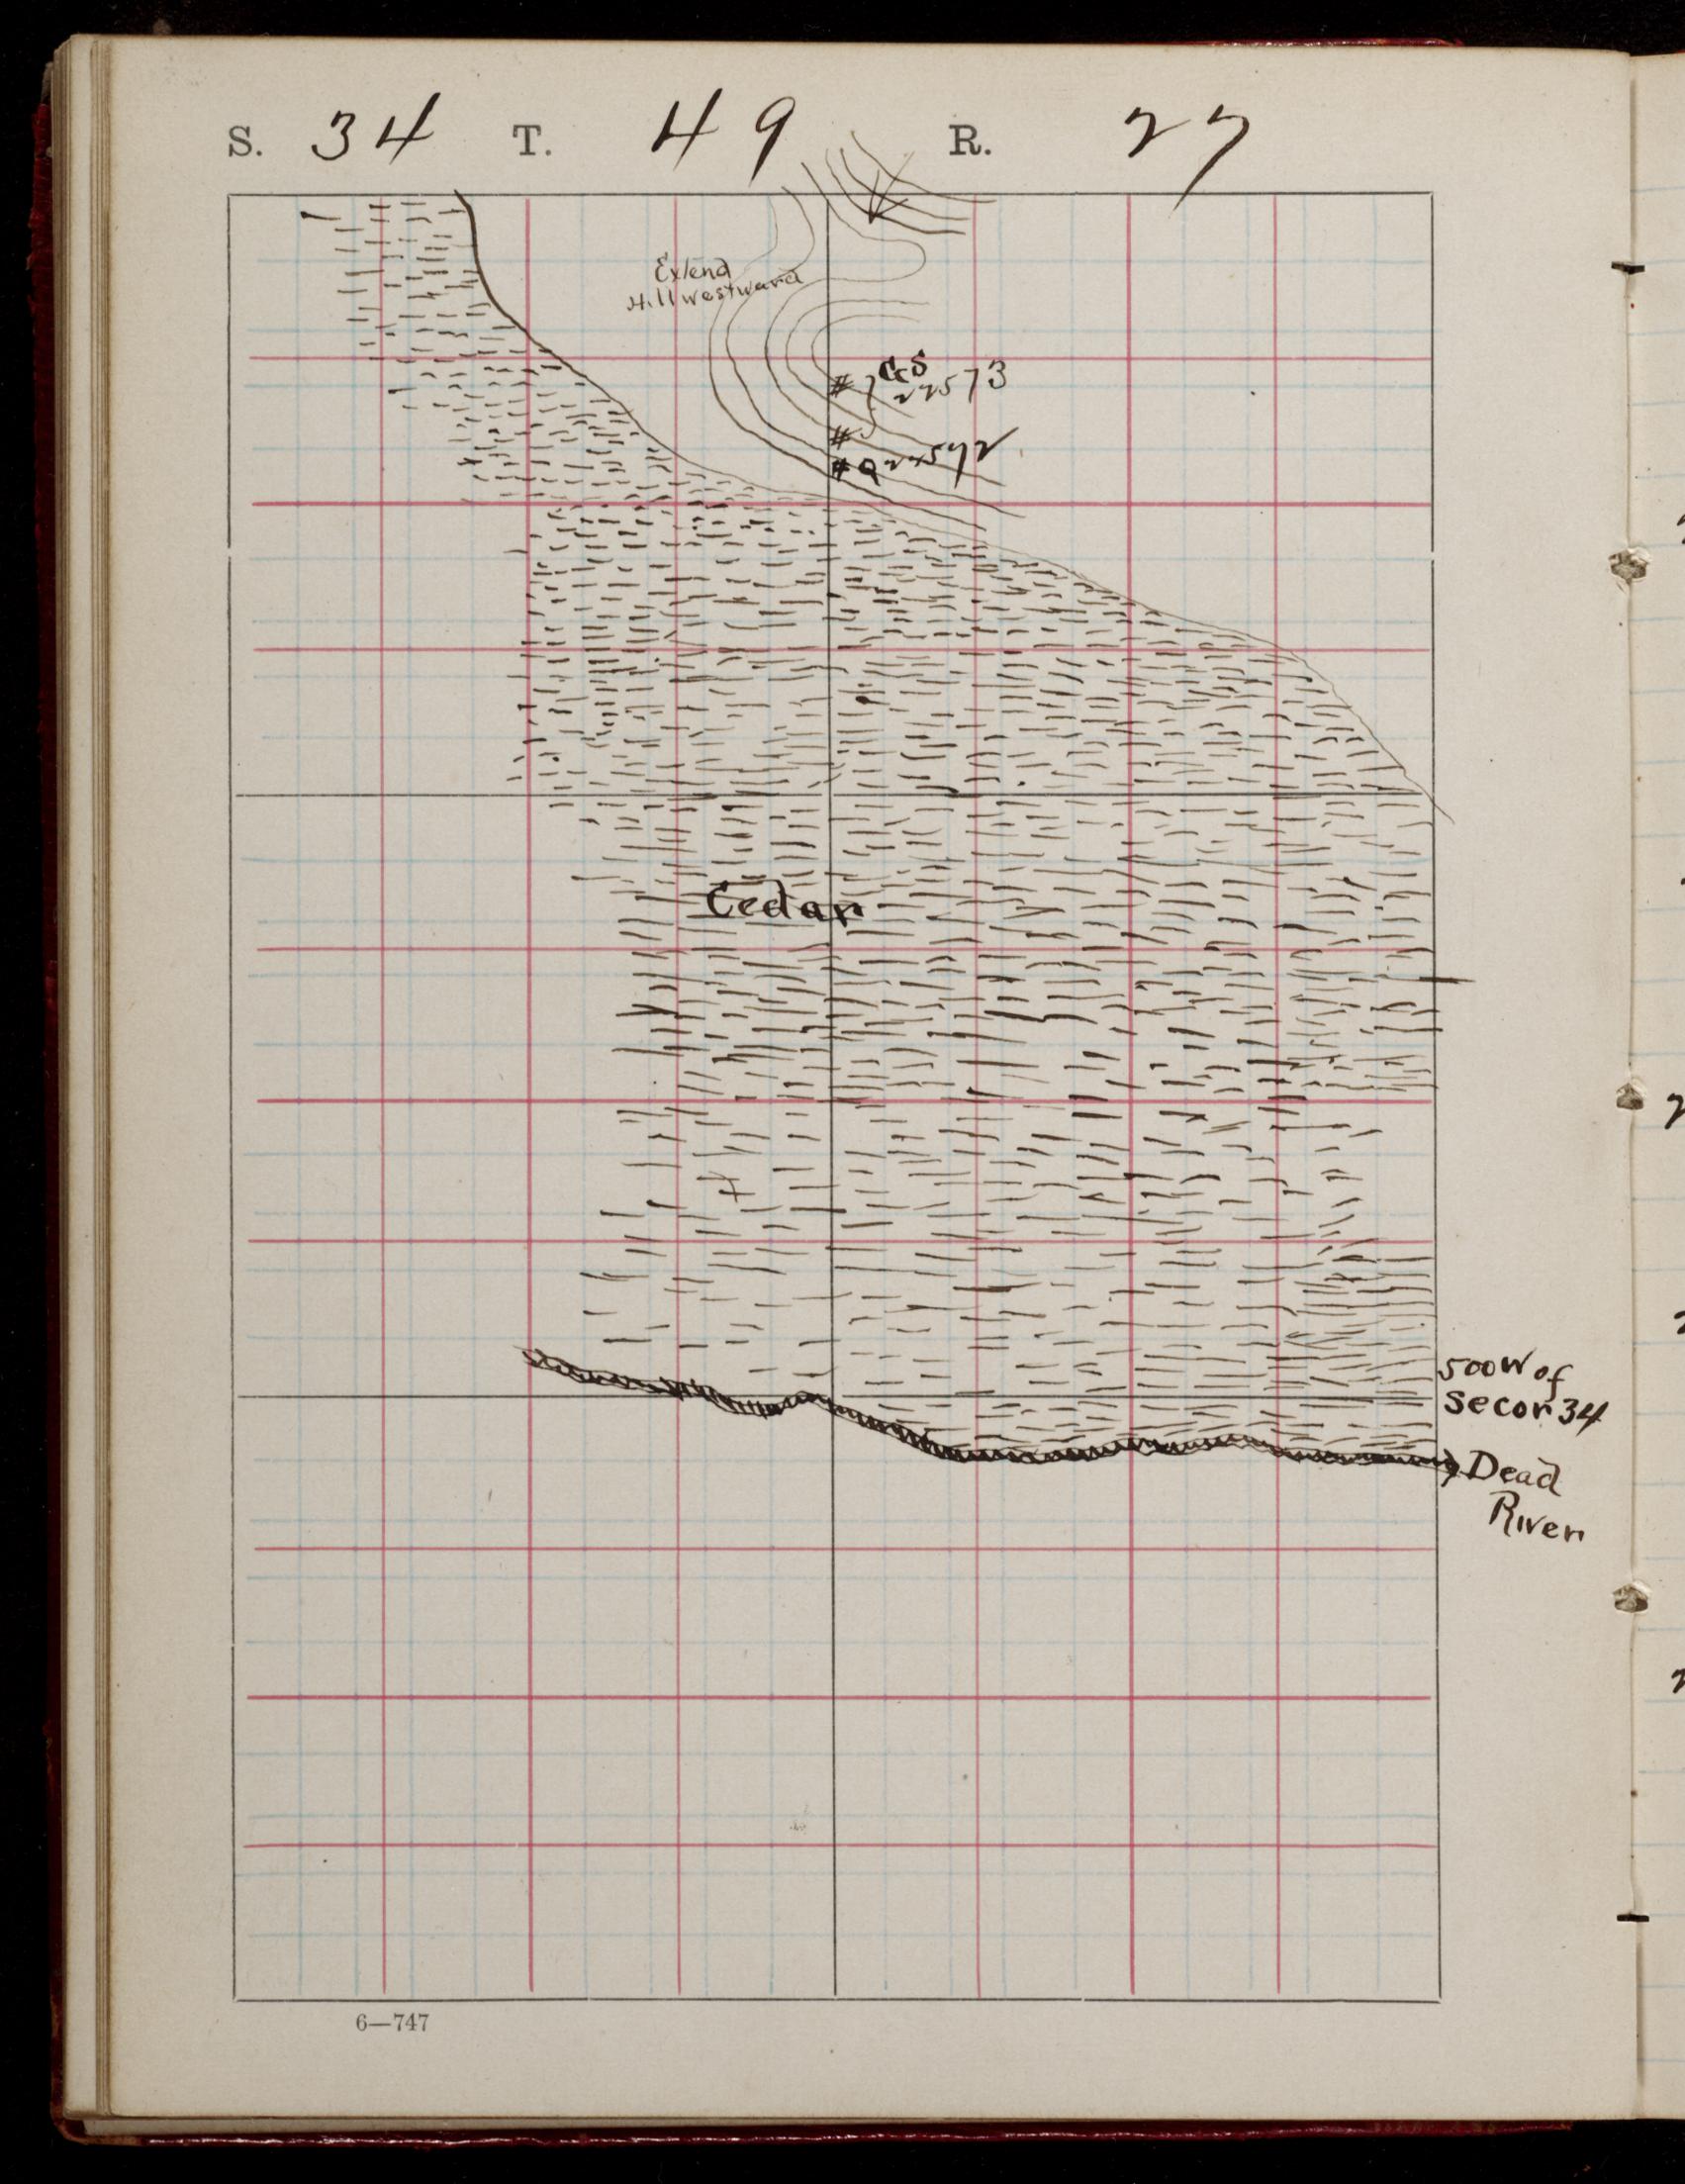 S. 34 T. 49 R. 27
Extend
Hill westward
GS
22573
22572
Cedar
500 W of
Se cor 34
Dead
River
6—747